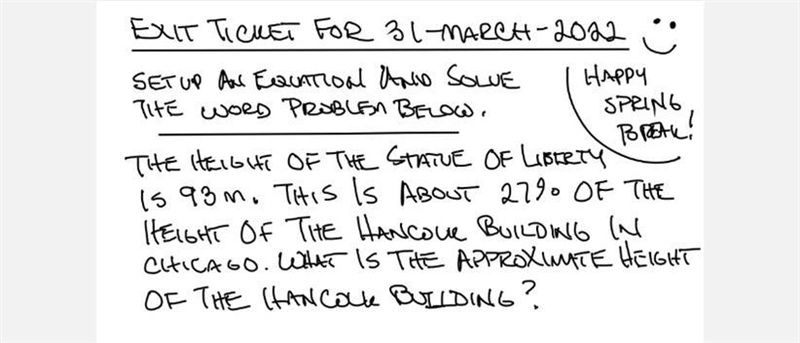 EXIT TICKET FOR 31-MARCH-2022
SET UP AN EQUATION AND SOLVE
THE WORD PROBLEM BELOW.
HAPPY
SPRING
BREAK!
THE HEIGHT OF THE STATUE OF LIBERTY
IS 93 m. THIS IS ABOUT 27% OF THE
HEIGHT OF THE HANCOCK BUILDING IN
CHICAGO. WHAT IS THE APPROXIMATE HEIGHT
OF THE HANCOCK BUILDING?